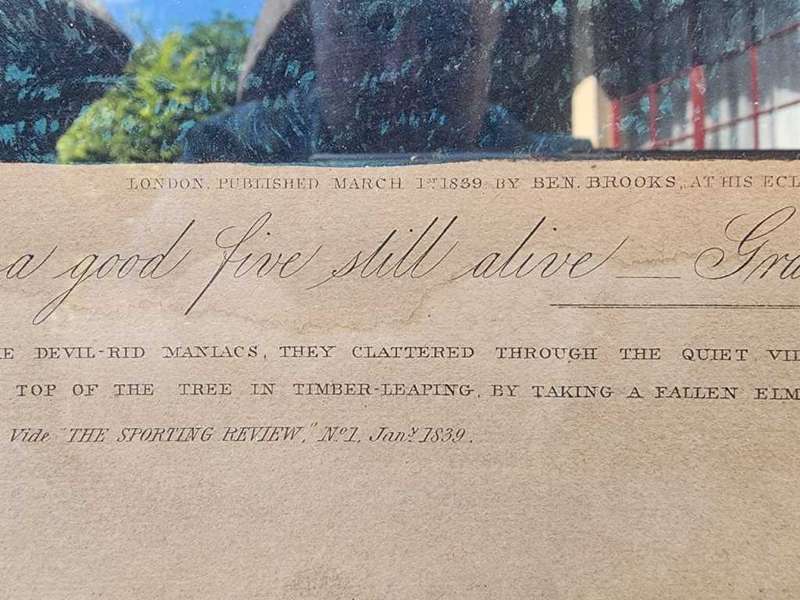 LONDON, PUBLISHED MARCH 1ST 1839 BY BEN. BROOKS, AT HIS ECL
a good five still alive — Gra
E DEVIL-RID MANIACS, THEY CLATTERED THROUGH THE QUIET VIL
TOP OF THE TREE IN TIMBER-LEAPING, BY TAKING A FALLEN ELM
Vide "THE SPORTING REVIEW," No. 1, Jany. 1839.